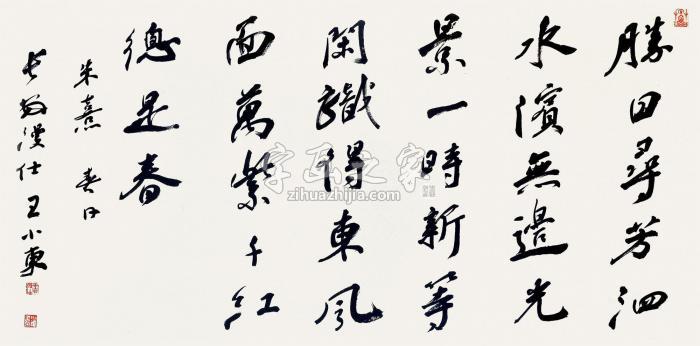 勝日尋芳泗
水濱無邊光
景一時新等
閑識得東風
面萬紫千紅
總是春
朱熹 春日
仕 王小東
字画之家
zihuazhijia.com